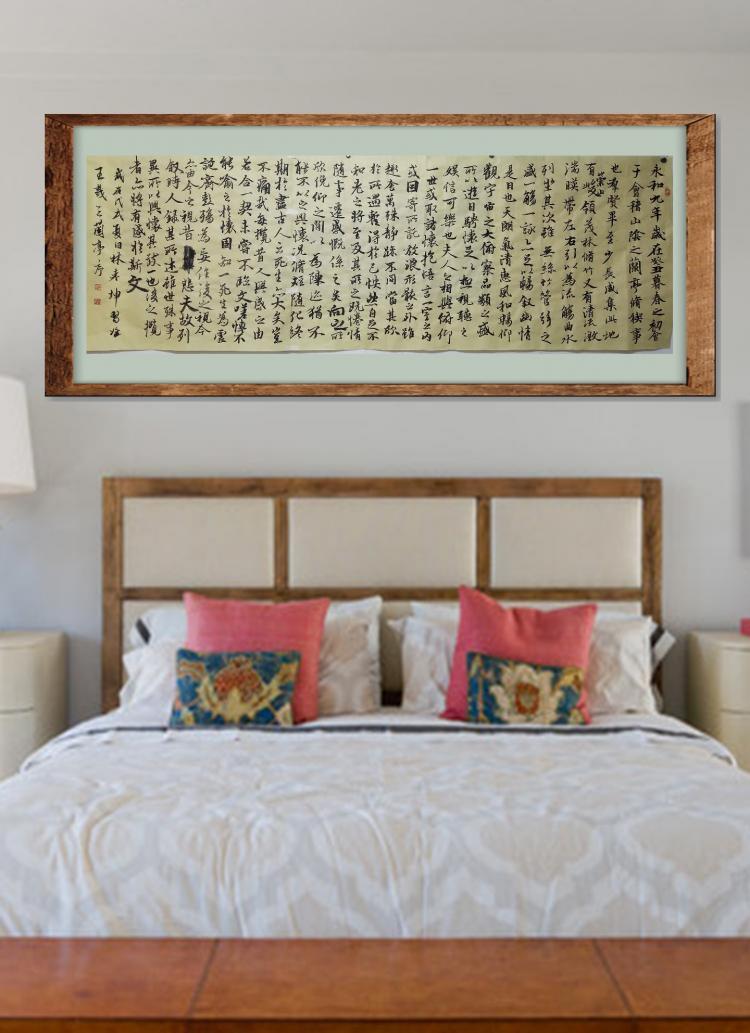 永和九年歲在癸丑暮春之初會
于會稽山陰之蘭亭脩稧事
也羣賢畢至少長咸集此地
有崇山峻領茂林脩竹又有清流激
湍暎帶左右引以為流觴曲水
列坐其次雖無絲竹管弦之
盛一觴一詠亦足以暢敘幽情
是日也天朗氣清惠風和暢仰
觀宇宙之大俯察品類之盛
所以遊目騁懷足以極視聽之
娛信可樂也夫人之相與俯仰
一世或取諸懷抱悟言一室之內
或因寄所託放浪形骸之外雖
趣舍萬殊靜躁不同當其欣
於所遇暫得於己怏然自足不
知老之將至及其所之既惓情
隨事遷感慨係之矣向之所
欣俛仰之閒以為陳迹猶不
能不以之興懷況脩短隨化終
期於盡古人云死生亦大矣豈
不痛哉每攬昔人興感之由
若合一契未嘗不臨文嗟悼不
能喻之於懷固知一死生為虛
誕齊彭殤為妄作後之視今
亦由今之視昔悲夫故列
敘時人錄其所述雖世殊事
異所以興懷其致一也後之攬
者亦將有感於斯文
戊戌夏日林坤
王羲之蘭亭序